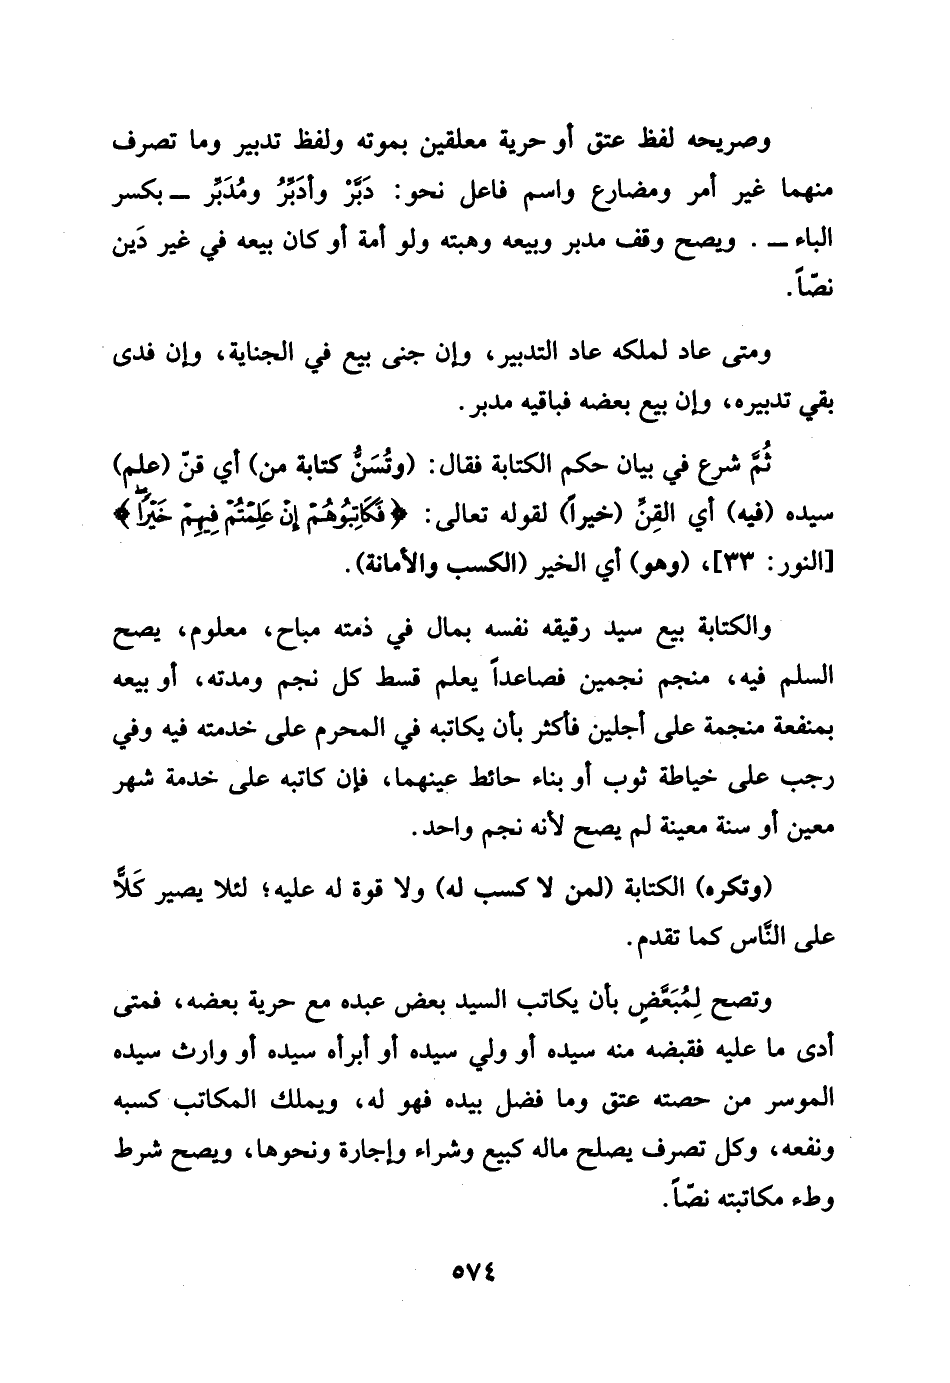 وصريحه لفظ عتق أو حرية معلقين بموته ولفظ تدبير وما تصرف
منهما غير أمر ومضارع واسم فاعل نحو: دَبَّرْ وأُدَبِّرُ ومُدَبِّر ــ بكسر
الباء ــ . ويصح وقف مدبر وبيعه وهبته ولو أمة أو كان بيعه في غير دَين
نصّاً.
ومتى عاد لملكه عاد التدبير، وإن جنى بيع في الجناية، وإن فدى
بقي تدبيره، وإن بيع بعضه فباقيه مدبر.
ثُمَّ شرع في بيان حكم الكتابة فقال: (وتُسَنُّ كتابة من) أي قنّ (علم)
سيده (فيه) أي القِنِّ (خيراً) لقوله تعالى: ﴿فَكَاتِبُوهُمْ إِنْ عَلِمْتُمْ فِيهِمْ خَيْراً﴾
[النور: ٣٣]، (وهو) أي الخير (الكسب والأمانة).
والكتابة بيع سيد رقيقه نفسه بمال في ذمته مباح، معلوم، يصح
السلم فيه، منجم نجمين فصاعداً يعلم قسط كل نجم ومدته، أو بيعه
بمنفعة منجمة على أجلين فأكثر بأن يكاتبه في المحرم على خدمته فيه وفي
رجب على خياطة ثوب أو بناء حائط عينهما، فإن كاتبه على خدمة شهر
معين أو سنة معينة لم يصح لأنه نجم واحد.
(وتكره) الكتابة (لمن لا كسب له) ولا قوة له عليه؛ لئلا يصير كَلًّا
على النَّاس كما تقدم.
وتصح لِمُبَعَّضٍ بأن يكاتب السيد بعض عبده مع حرية بعضه، فمتى
أدى ما عليه فقبضه منه سيده أو ولي سيده أو أبرأه سيده أو وارث سيده
الموسر من حصته عتق وما فضل بيده فهو له، ويملك المكاتب كسبه
ونفعه، وكل تصرف يصلح ماله كبيع وشراء وإجارة ونحوها، ويصح شرط
وطء مكاتبته نصّاً.
٥٧٤